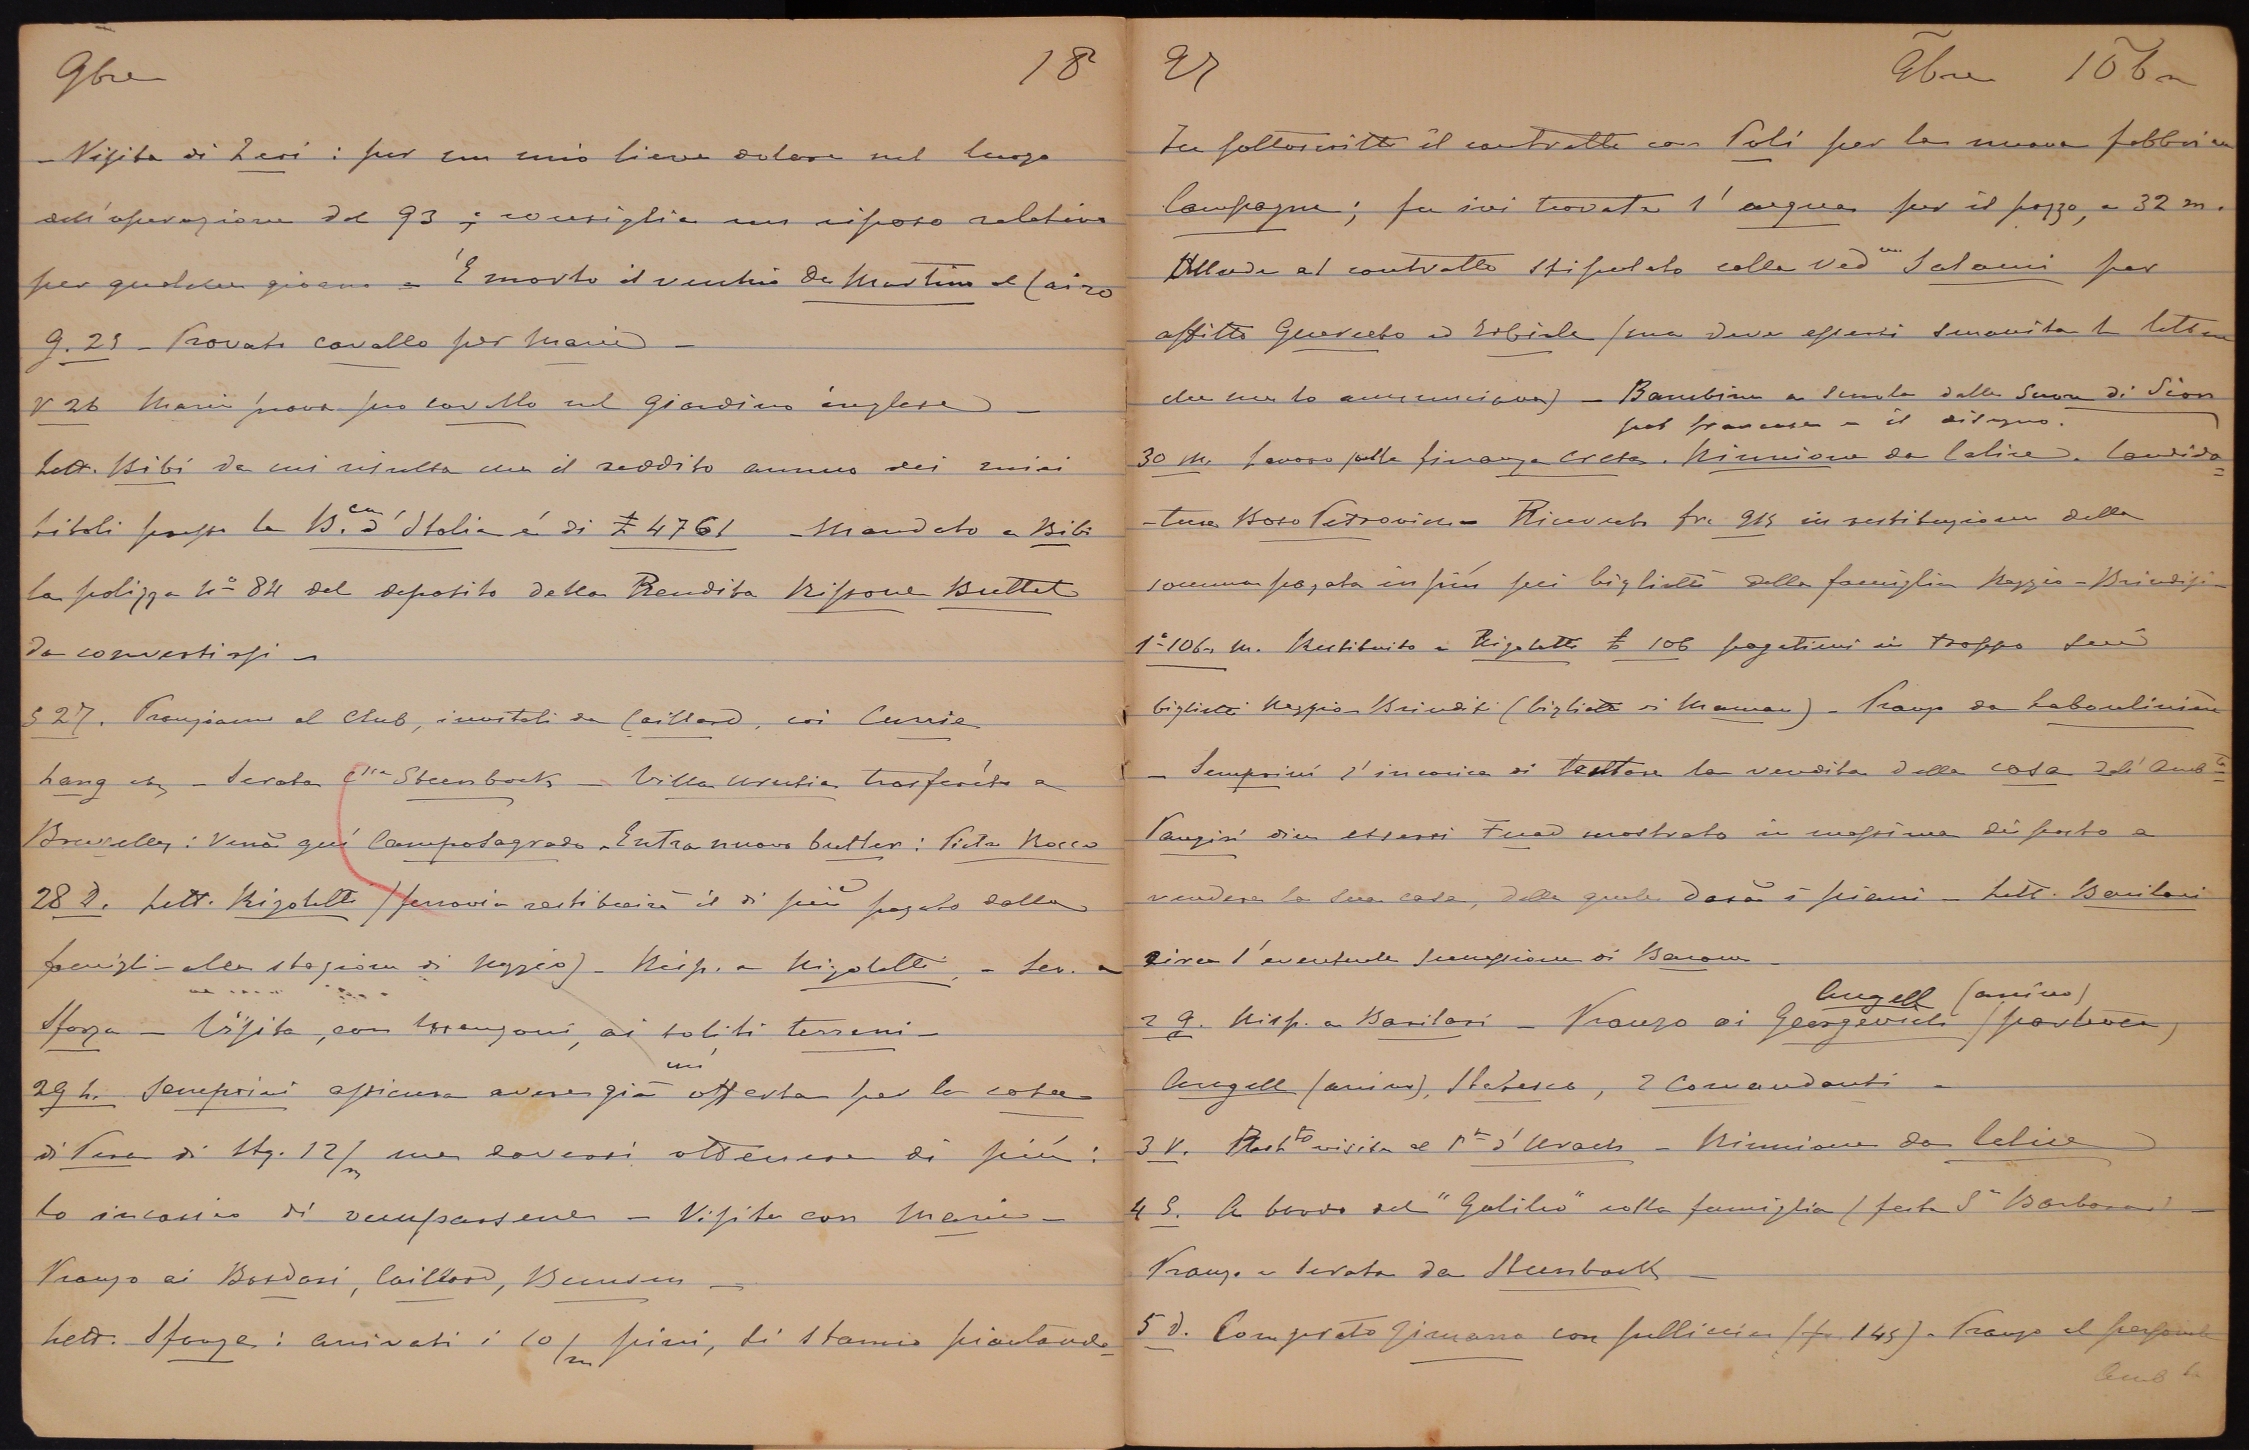 9bre 18
- Visita di Zeri : per un mio lieve dolore nel luogo
dell'operazione del 93 ; consiglia un riposo relativo
per qualche giorno - È morto il vecchio De Martino al Cairo
G. 25 - Trovato cavallo per Marie -
V 26 Marie prova suo cavallo nel giardino inglese -
Lett. Bibi da cui risulta che il reddito annuo dei miei
titoli presso la B.ca d'Italia è di £ 4761 - Mandato a Bibi
la polizza N° 84 del deposito della Rendita Rispone Buttet
da convertirsi -
S 27. Pranziamo al Club, invitati da Caillard, coi Currie
Lang etc - Serata C.ssa Steenbock - Villa Urrutia trasferito a
Bruxelles : verrà qui Camposagrado. Entra nuovo butler : Pietro Rocco
28 D. Lett. Rigoletti (ferrovia restituirà il di più pagato dalla
famiglia alla stazione di Reggio) - Risp. a Rigoletti - Lev. a
Sforza - Visita, con , ai soliti terreni -
29 L. Semprini assicura avere già un' offerta per la casa
di Pera di Stg. 12/m ma doversi ottenere di più :
lo incarico di occuparsene - Visite con Marie -
Pranzo ai Bordari, Caillard, Bunsen -
Lett. Sforza : arrivati i 10/m pini, si stanno piantando
97 9bre 10bre
Fu sottoscritto il contratto con Poli per la nuova fabbrica
Campagne ; fu ivi trovata l'acqua per il pozzo, a 32 m.
Allude al contratto stipulato colla Ved.va Salami per
affitto Querceto ed Erbiale (ma deve essersi smarrita la lettera
che me lo annunciava) - Bambine a scuola dalle Suore di Sion
pel francese e il disegno.
30 M. Lavoro sulla finanza Creta. Riunione da Calice. Candida-
-tura Boso Petrovich - Ricevuto fr. 915 in restituzione della
somma pagata in più pei biglietti della famiglia Reggio - Brindisi
1° 10bre M. Restituito a Rigoletti £ 106 pagatimi in troppo sui
biglietti Reggio Brindisi (biglietto di Maman) - Pranzo da Laboulinière
- Semprini s'incarica di trattare la vendita della casa dell'Amb.ta
Pangiri dice essersi Fuad mostrato in massima disposto a
vendere la sua casa, della quale darà i piani - Lett. Barilari
circa l'eventuale successione di Barone -
2 G. Risp. a Barilari - Pranzo ai Georgevich (partenza)
Angell (arrivo)
Angell (arrivo), Statesco, 2 Comandanti -
3 V. visita al P.pe d'Urach - Riunione da Calice
4 S. A bordo del "Galileo" colla famiglia (festa S.a Barbara) -
Pranzo e serata da Steenbock -
5 D. Comprato zimarra con pelliccia (fr. 145) - Pranzo al personale
Amb.ta